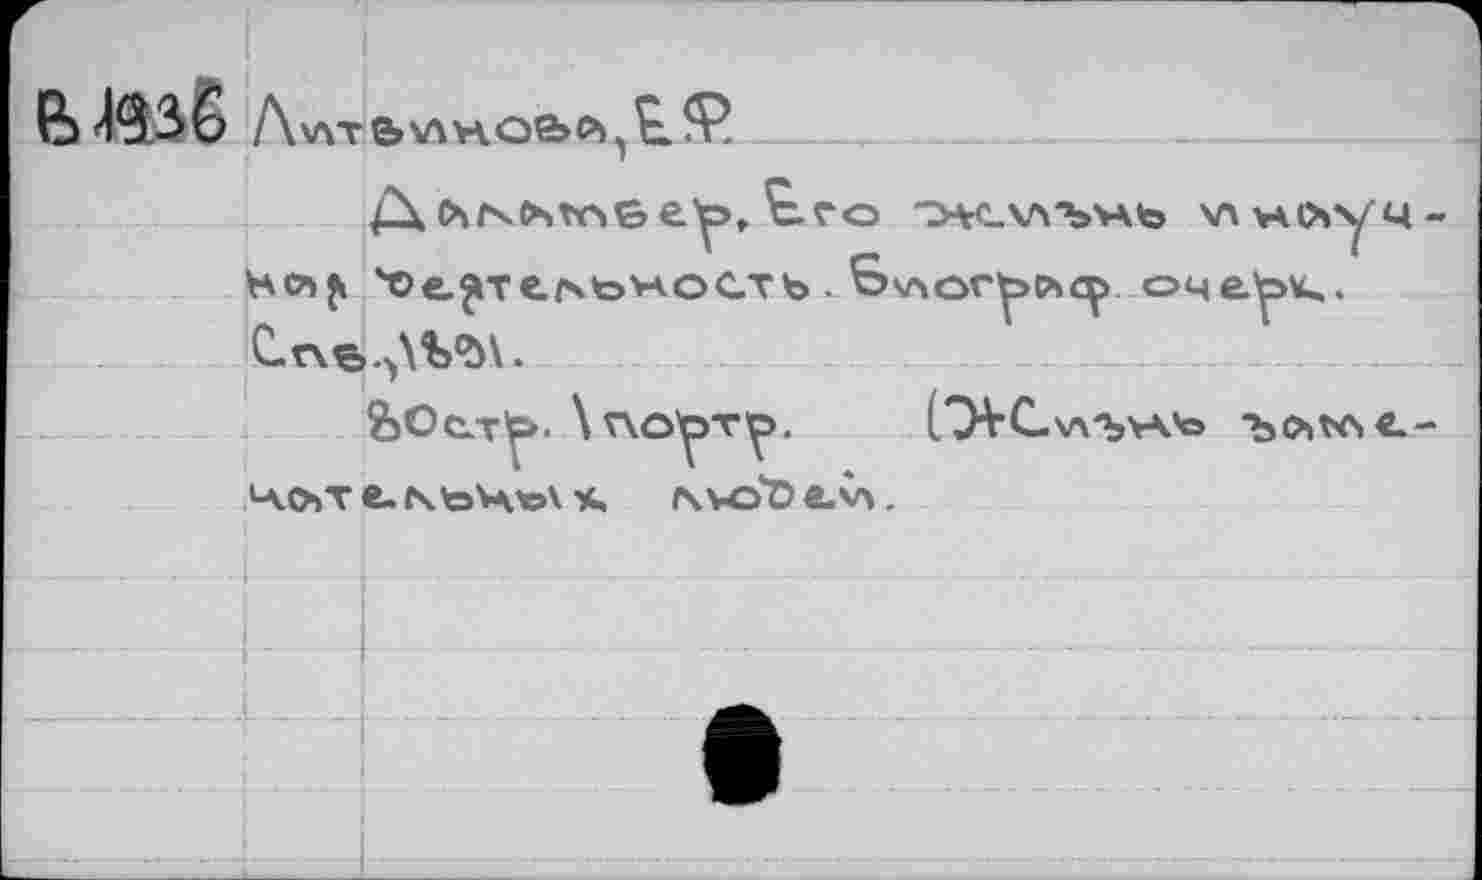 В 1936 Литвинова, Е.Ф.
Даламбер, Его жизнь и науч-
ная деятельность. Биограф. очерк.
Спб., 1891.
80стр. 1 портр. (Жизнь заме-
чательных людей.